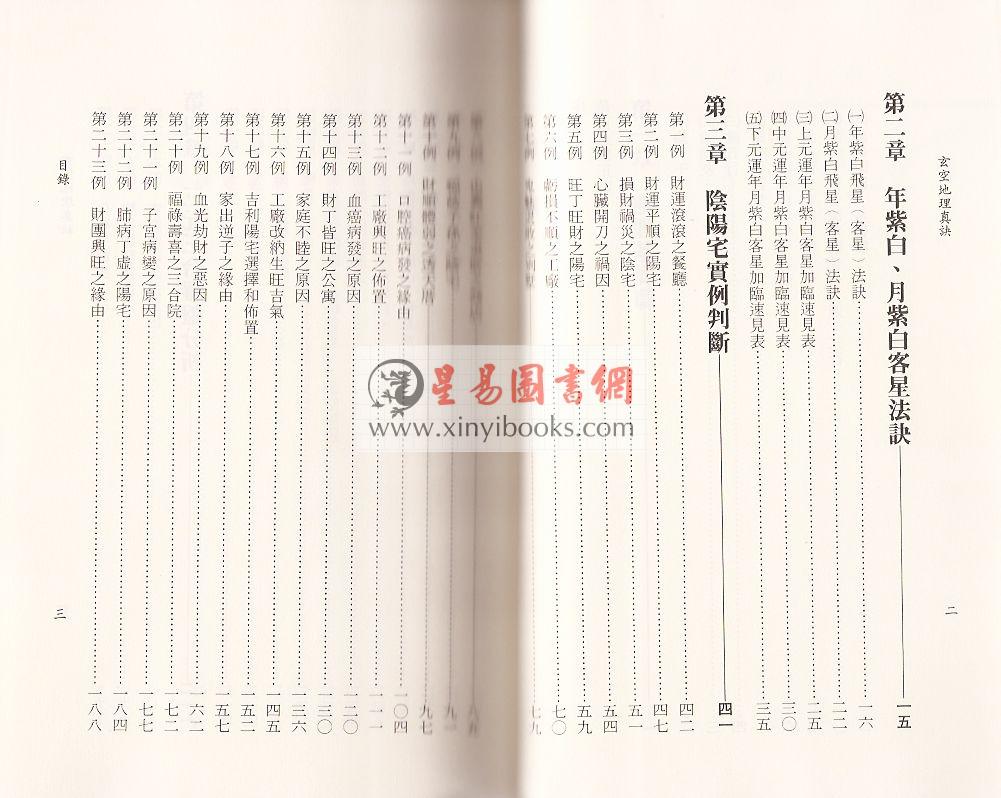 玄空地理真訣
第二章 年紫白、月紫白客星法訣 一五
㈠年紫白飛星（客星）法訣 一六
㈡月紫白飛星（客星）法訣 二二
㈢上元運年月紫白客星加臨速見表 二五
㈣中元運年月紫白客星加臨速見表 三〇
㈤下元運年月紫白客星加臨速見表 三五
第三章 陰陽宅實例判斷 四一
第一例 財運滾滾之餐廳 四二
第二例 財運平順之陽宅 四七
第三例 損財禍災之陰宅 五一
第四例 心臟開刀之禍因 五四
第五例 旺丁旺財之陽宅 五九
第六例 虧損不順之工廠 七〇
第七例 七九
二
第十例 九七
第十一例 口腔癌病發之緣由 一〇四
第十二例 工廠興旺之佈置 一一一
第十三例 血癌病發之原因 一二〇
第十四例 財丁皆旺之公寓 一三〇
第十五例 家庭不睦之原因 一三六
第十六例 工廠改納生旺吉氣 一四五
第十七例 吉利陽宅選擇和佈置 一五二
第十八例 家出逆子之緣由 一五七
第十九例 血光劫財之惡因 一六二
第二十例 福祿壽喜之三合院 一七二
第二十一例 子宮病變之原因 一七七
第二十二例 肺病丁虛之陽宅 一八四
第二十三例 財團興旺之緣由 一八八
目錄
三
星易圖書網
www.xinyibooks.com